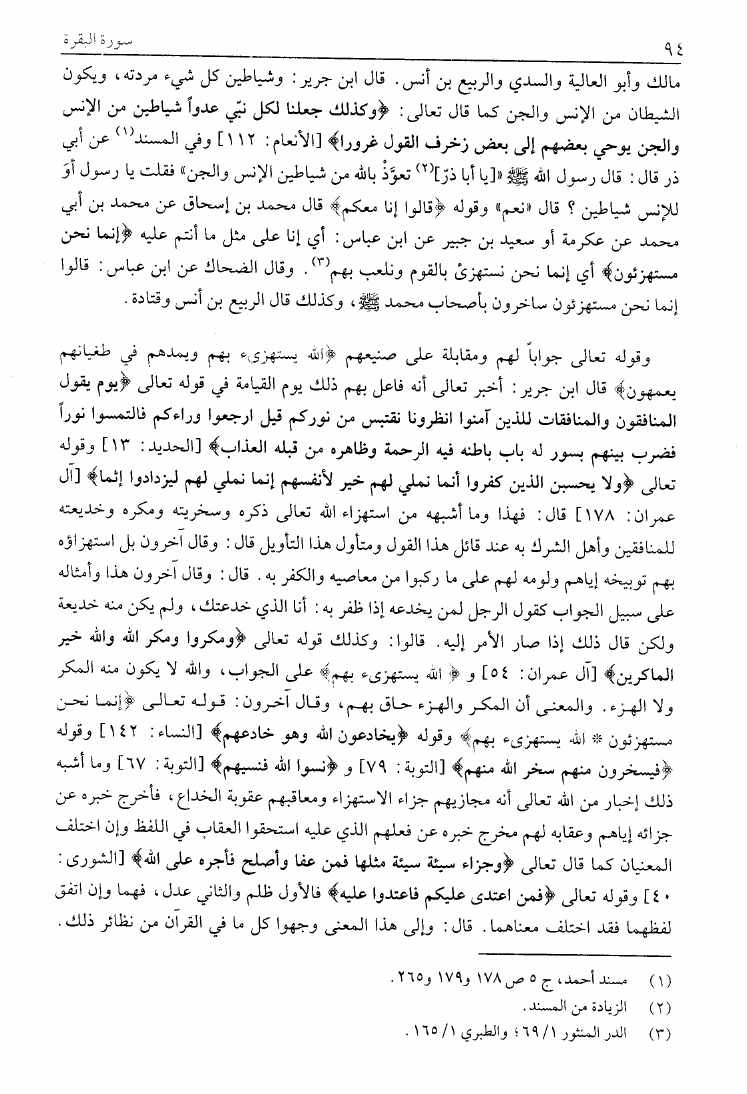 ٩٤
سورة البقرة
مالك وأبو العالية والسدي والربيع بن أنس. قال ابن جرير: وشياطين كل شيء مردته، ويكون
الشيطان من الإنس والجن كما قال تعالى: ﴿وكذلك جعلنا لكل نبّي عدواً شياطين من الإنس
والجن يوحي بعضهم إلى بعض زخرف القول غرورا﴾ [الأنعام: ١١٢] وفي المسند(١) عن أبي
ذر قال: قال رسول الله ﷺ «[يا أبا ذرّ](٢) تعوَّذْ بالله من شياطين الإنس والجن» فقلت يا رسول أوَ
للإنس شياطين ؟ قال «نعم» وقوله ﴿قالوا إنا معكم﴾ قال محمد بن إسحاق عن محمد بن أبي
محمد عن عكرمة أو سعيد بن جبير عن ابن عباس: أي إنا على مثل ما أنتم عليه ﴿إنما نحن
مستهزئون﴾ أي إنما نحن نستهزئ بالقوم ونلعب بهم(٣). وقال الضحاك عن ابن عباس: قالوا
إنما نحن مستهزئون ساخرون بأصحاب محمد ﷺ، وكذلك قال الربيع بن أنس وقتادة.
وقوله تعالى جواباً لهم ومقابلة على صنيعهم ﴿الله يستهزىء بهم ويمدهم في طغيانهم
يعمهون﴾ قال ابن جرير: أخبر تعالى أنه فاعل بهم ذلك يوم القيامة في قوله تعالى ﴿يوم يقول
المنافقون والمنافقات للذين آمنوا انظرونا نقتبس من نوركم قيل ارجعوا وراءكم فالتمسوا نوراً
فضرب بينهم بسور له باب باطنه فيه الرحمة وظاهره من قبله العذاب﴾ [الحديد: ١٣] وقوله
تعالى ﴿ولا يحسبن الذين كفروا أنما نملي لهم خير لأنفسهم إنما نملي لهم ليزدادوا إثما﴾ [آل
عمران: ١٧٨] قال: فهذا وما أشبهه من استهزاء الله تعالى ذكره وسخريته ومكره وخديعته
للمنافقين وأهل الشرك به عند قائل هذا القول ومتأول هذا التأويل قال: وقال آخرون بل استهزاؤه
بهم توبيخه إياهم ولومه لهم على ما ركبوا من معاصيه والكفر به. قال: وقال آخرون هذا وأمثاله
على سبيل الجواب كقول الرجل لمن يخدعه إذا ظفر به: أنا الذي خدعتك، ولم يكن منه خديعة
ولكن قال ذلك إذا صار الأمر إليه. قالوا: وكذلك قوله تعالى ﴿ومكروا ومكر الله والله خير
الماكرين﴾ [آل عمران: ٥٤] و ﴿ الله يستهزىء بهم﴾ على الجواب، والله لا يكون منه المكر
ولا الهزء. والمعنى أن المكر والهزء حاق بهم، وقال آخرون: قوله تعالى ﴿إنما نحن
مستهزئون * الله يستهزىء بهم﴾ وقوله ﴿يخادعون الله وهو خادعهم﴾ [النساء: ١٤٢] وقوله
﴿فيسخرون منهم سخر الله منهم﴾ [التوبة: ٧٩] و ﴿نسوا الله فنسيهم﴾ [التوبة: ٦٧] وما أشبه
ذلك إخبار من الله تعالى أنه مجازيهم جزاء الاستهزاء ومعاقبهم عقوبة الخداع، فأخرج خبره عن
جزائه إياهم وعقابه لهم مخرج خبره عن فعلهم الذي عليه استحقوا العقاب في اللفظ وإن اختلف
المعنيان كما قال تعالى ﴿وجزاء سيئة سيئة مثلها فمن عفا وأصلح فأجره على الله﴾ [الشورى:
٤٠] وقوله تعالى ﴿فمن اعتدى عليكم فاعتدوا عليه﴾ فالأول ظلم والثاني عدل، فهما وإن اتفق
لفظهما فقد اختلف معناهما. قال: وإلى هذا المعنى وجهوا كل ما في القرآن من نظائر ذلك.
(١) مسند أحمد، ج ٥ ص ١٧٨ و١٧٩ و٢٦٥.
(٢) الزيادة من المسند.
(٣) الدر المنثور ١/ ٦٩؛ والطبري ١/ ١٦٥.